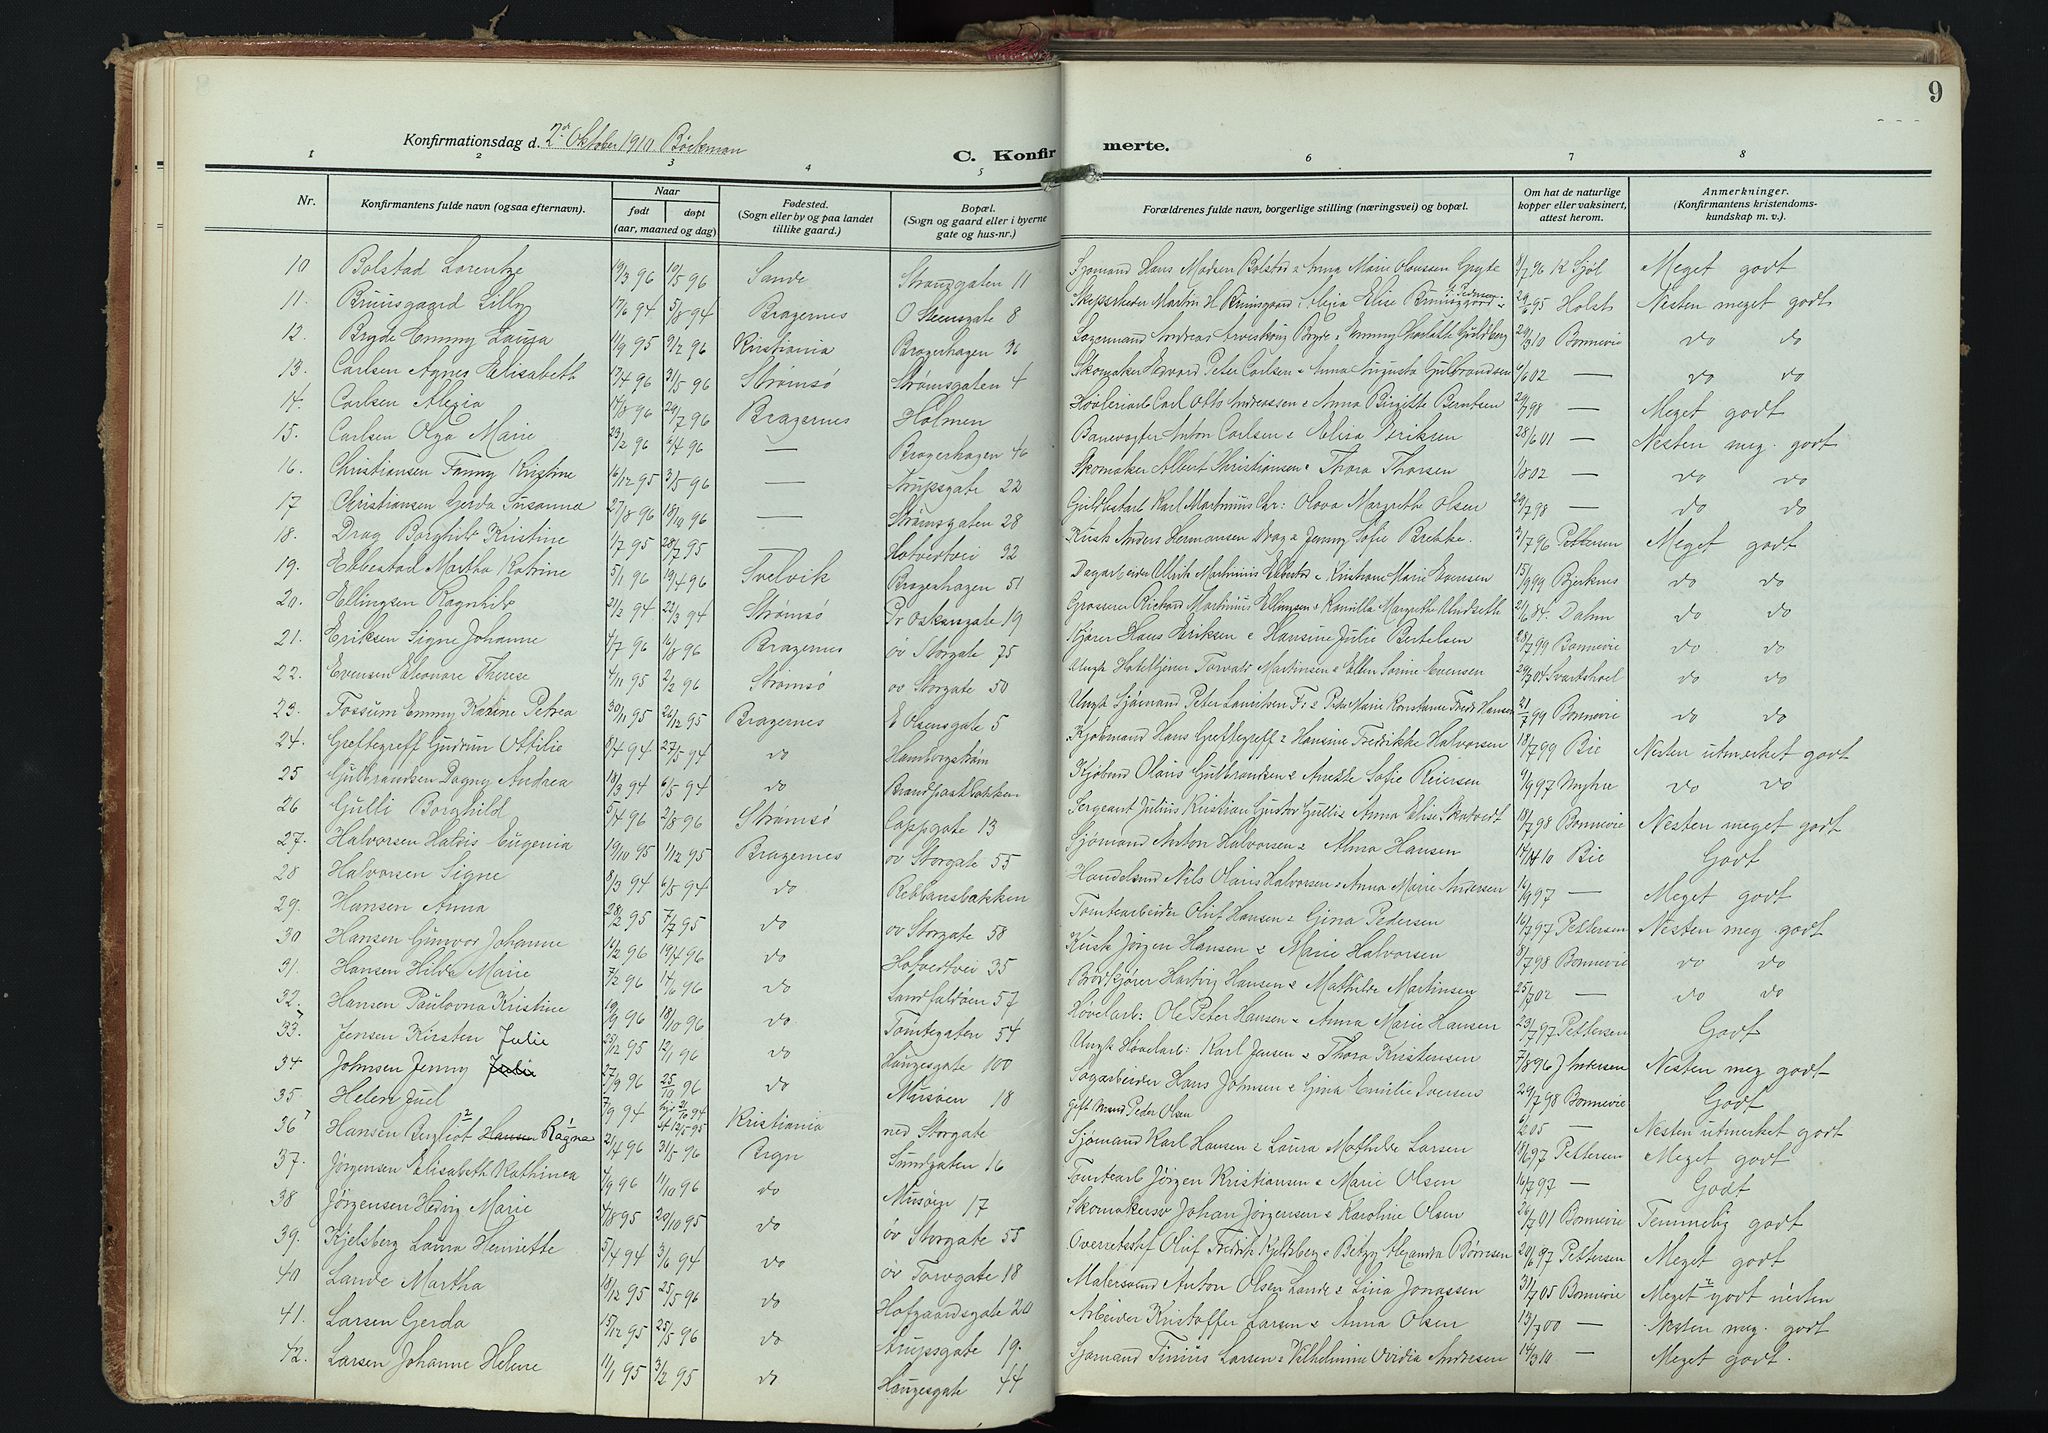 9
Konfirmationsdag d. 2den Oktober 1910. Bøckman
C. Konfirmerte.
1 2 3 4 5 6 7 8
Nr. Konfirmantens fulde navn (ogsaa efternavn). Naar født døpt (aar, maaned og dag) Fødested. (Sogn eller by og paa landet tillike gaard.) Bopæl. (Sogn og gaard eller i byerne gate og hus-nr.) Forældrenes fulde navn, borgerlige stilling (næringsvei) og bopæl. Om hat de naturlige kopper eller vaksinert, attest herom. Anmerkninger. (Konfirmantens kristendomskundskap m. v.)
10 Bolstad Lorentze 19/3 96 10/5 96 Sande Stranggaten 11 Sjømand Hans Madsen Bolstad & Anna Marie Olaussen Gryte 8/7 96 K Sjøl Meget godt
11. Bruusgaard Lilly 17/6 94 5/8 94 Bragernes O Steensgate 8 Skipsreder Martin H. Bruusgaard & Alexia Elise Bruusgaard f. Pedersen 29/6 95 Holst Nesten meget godt
12. Bryde Emmy Laura 11/9 95 9/2 96 Kristiania Bragerhagen 36 Lagermand Andreas Bryde & Emmy Charlotte Guldberg 29/3 10 Bonnevie do do
13. Carlsen Agnes Elisabeth 17/4 96 31/5 96 Strømsø Strømsgaten 4 Skomaker Edvard Peter Carlsen & Anna Augusta Gulbrandsen 6/6 02 — do do
14. Carlsen Alexia 14/8 96 29/7 96 Bragernes Holmen Høvleriarb Carl Otto Andreassen & Anna Birgitte Berntsen 29/7 98 — Meget godt
15. Carlsen Olga Marie 23/2 96 6/4 96 — Bragerhagen 46 Banevogter Anton Carlsen & Elisa Eriksen 28/6 01 — Nesten meg. godt
16. Christiansen Fanny Kristine 6/12 95 3/5 96 — Krupsgate 22 Skomaker Albert Christiansen & Thora Thorsen 1/8 02 — do do
17 Christiansen Gerda Susanna 27/8 96 18/10 96 — Strømsgaten 28 Guldbestarb Karl Martinius Chr: Olava Margreth Olsen 29/7 98 — do do
18. Drag Borghild Kristine 1/7 95 28/7 95 — Hotvedtvei 32 Kusk Anders Hermansen Drag & Jenny Sofie Brekke. 3/7 96 Pettersen Meget godt
19. Ebbestad Martha Katrine 5/1 96 19/4 96 Svelvik Bragerhagen 51 Dagarbeider Ulrik Martinius Ebbestad & Kristiane Marie Evensen 15/9 99 Bjerknes do do
20. Ellingsen Ragnhild 21/2 94 22/3 94 Strømsø Pr Oskarsgate 19 Grosserer Rickard Martinius Ellingsen & Kamilla Margrethe 21/6 84. Dahm do do
21. Eriksen Signe Johanne 4/7 96 16/8 96 Bragernes øv Storgate 75 Kjører Hans Eriksen & Hansine Julie Bertelsen 28/7 99 Bonnevie do do
22. Evensen Eleonore Therese 4/11 95 2/2 96 Strømsø øv Storgate 50 Ungk Hoteltjener Torvald Martinsen & Ellen Sorine Evensen 29/7 04 Svartskoel do do
23. Fossum Emmy Karine Petrea 30/11 95 26/12 95 Bragernes E Olsensgate 5 Ungk Sjømand Peter Lauritsen F. & Pike Marie Konstance Fredr Hansen 21/7 99 Bonnevie do do
24. Greftegreff Gudrun Ottilie 8/4 94 27/5 94 do Hambergstrøm Kjøbmand Hans Greftegreff & Hansine Fredrikke Halvorsen 18/7 99 Bie Nesten utmerket godt
25 Gulbrandsen Dagny Andrea 18/3 94 6/5 94 do Brandpostbakken Kjøbmd Olaus Gulbrandsen & Anette Sofie Reiersen 9/9 97 Myhre do do
26 Gulli Borghild 5/4 96 2/8 96 Strømsø Cappgate 13 Sergeant Julius Kristian Gustav Gulli & Anna Elise Skotvedt 18/7 98 Bonnevie Nesten meget godt
27. Halvorsen Haldis Eugenia 19/10 95 1/12 95 Bragernes øv Storgate 55 Sjømand Anton Halvorsen & Alma Hansen 14/4 10 Bie Godt
28 Halvorsen Signe 8/3 94 6/5 94 do Rebbansbakken Handelsmd Nils Olaus Halvorsen & Anna Marie Andersen 16/9 97 — Meget godt
29. Hansen Anna 28/2 95 7/7 95 do øv Storgate 58 Tomtearbeider Oluf Hansen & Gina Pedersen 16/7 97 Pettersen Nesten meg. godt
30 Hansen Gunvor Johanne 16/2 96 19/4 96 do Hotvedtvei 35 Kusk Jørgen Hansen & Marie Halvorsen 8/7 98 Bonnevie do do
31. Hansen Hilda Marie 7/2 96 14/6 96 do Landfaldøen 57 Brødkjører Hartvig Hansen & Mathilde Martinsen 25/7 02 — do do
32. Hansen Paulovna Kristine 19/9 96 18/10 96 do Tomtegaten 54 Høvelarb: Ole Peter Hansen & Anna Marie Hansen 23/7 97 Pettersen Godt
33. Jensen Kirsten Julie 25/12 95 12/1 96 do Haugesgate 100 Ungk Høvlarb: Karl Jensen & Thora Kristensen 7/8 96 J Andersen Nesten meg godt
34. Johnsen Jenny Julie 27/9 96 25/10 96 do Musøen 18 Sagarbeider Hans Johnsen & Gina Emilie Iversen 29/7 98 Bonnevie Godt
35 Helen Juel 7/9 94 21/10 94 st 12/5 95 Kristiania ned Storgate Gift Mand Peder Olsen 6/2 05 — Nesten utmerket godt
36 Hansen Bergliot Hansen Ragna 21/4 96 31/5 96 Brgn Sundgaten 16 Sjømand Karl Hansen & Laura Mathilde Larsen 18/6 97 Pettersen Meget godt
37. Jørgensen Elisabeth Kathinea 4/9 96 11/10 96 do Musøen 17 Tomtearb Jørgen Kristiansen & Marie Olsen 16/7 97 — Godt
38 Jørgensen Hedvig Marie 4/8 95 20/10 95 do øv Storgate 55 Skomakersv Johan Jørgensen & Karoline Olsen 26/7 01 Bonnevie Temmelig godt
39. Kjelsberg Laura Henriette 5/4 94 3/6 94 do øv Torvgate 18 Overretssaf Oluf Fredrik Kjelsberg & Betzy Alexandra Børresen 20/6 97 Pettersen Meget godt
40 Lande Martha 18/12 95 25/5 96 do Hofgaardsgate 20 Malersvend Anton Olsen Lande & Lina Jonassen 3/7 05 Bonnevie Meget godt nesten
41. Larsen Gerda 15/12 95 25/5 96 do Krupsgate 19. Arbeider Kristoffer Larsen & Anna Olsen 13/7 00 — Nesten meg. godt
42. Larsen Johanne Helene 11/1 95 3/2 95 do Haugesgate 44 Sjømand Tinius Larsen & Vilhelmine Ovidia Andresen 14/3 10 — Meget godt.